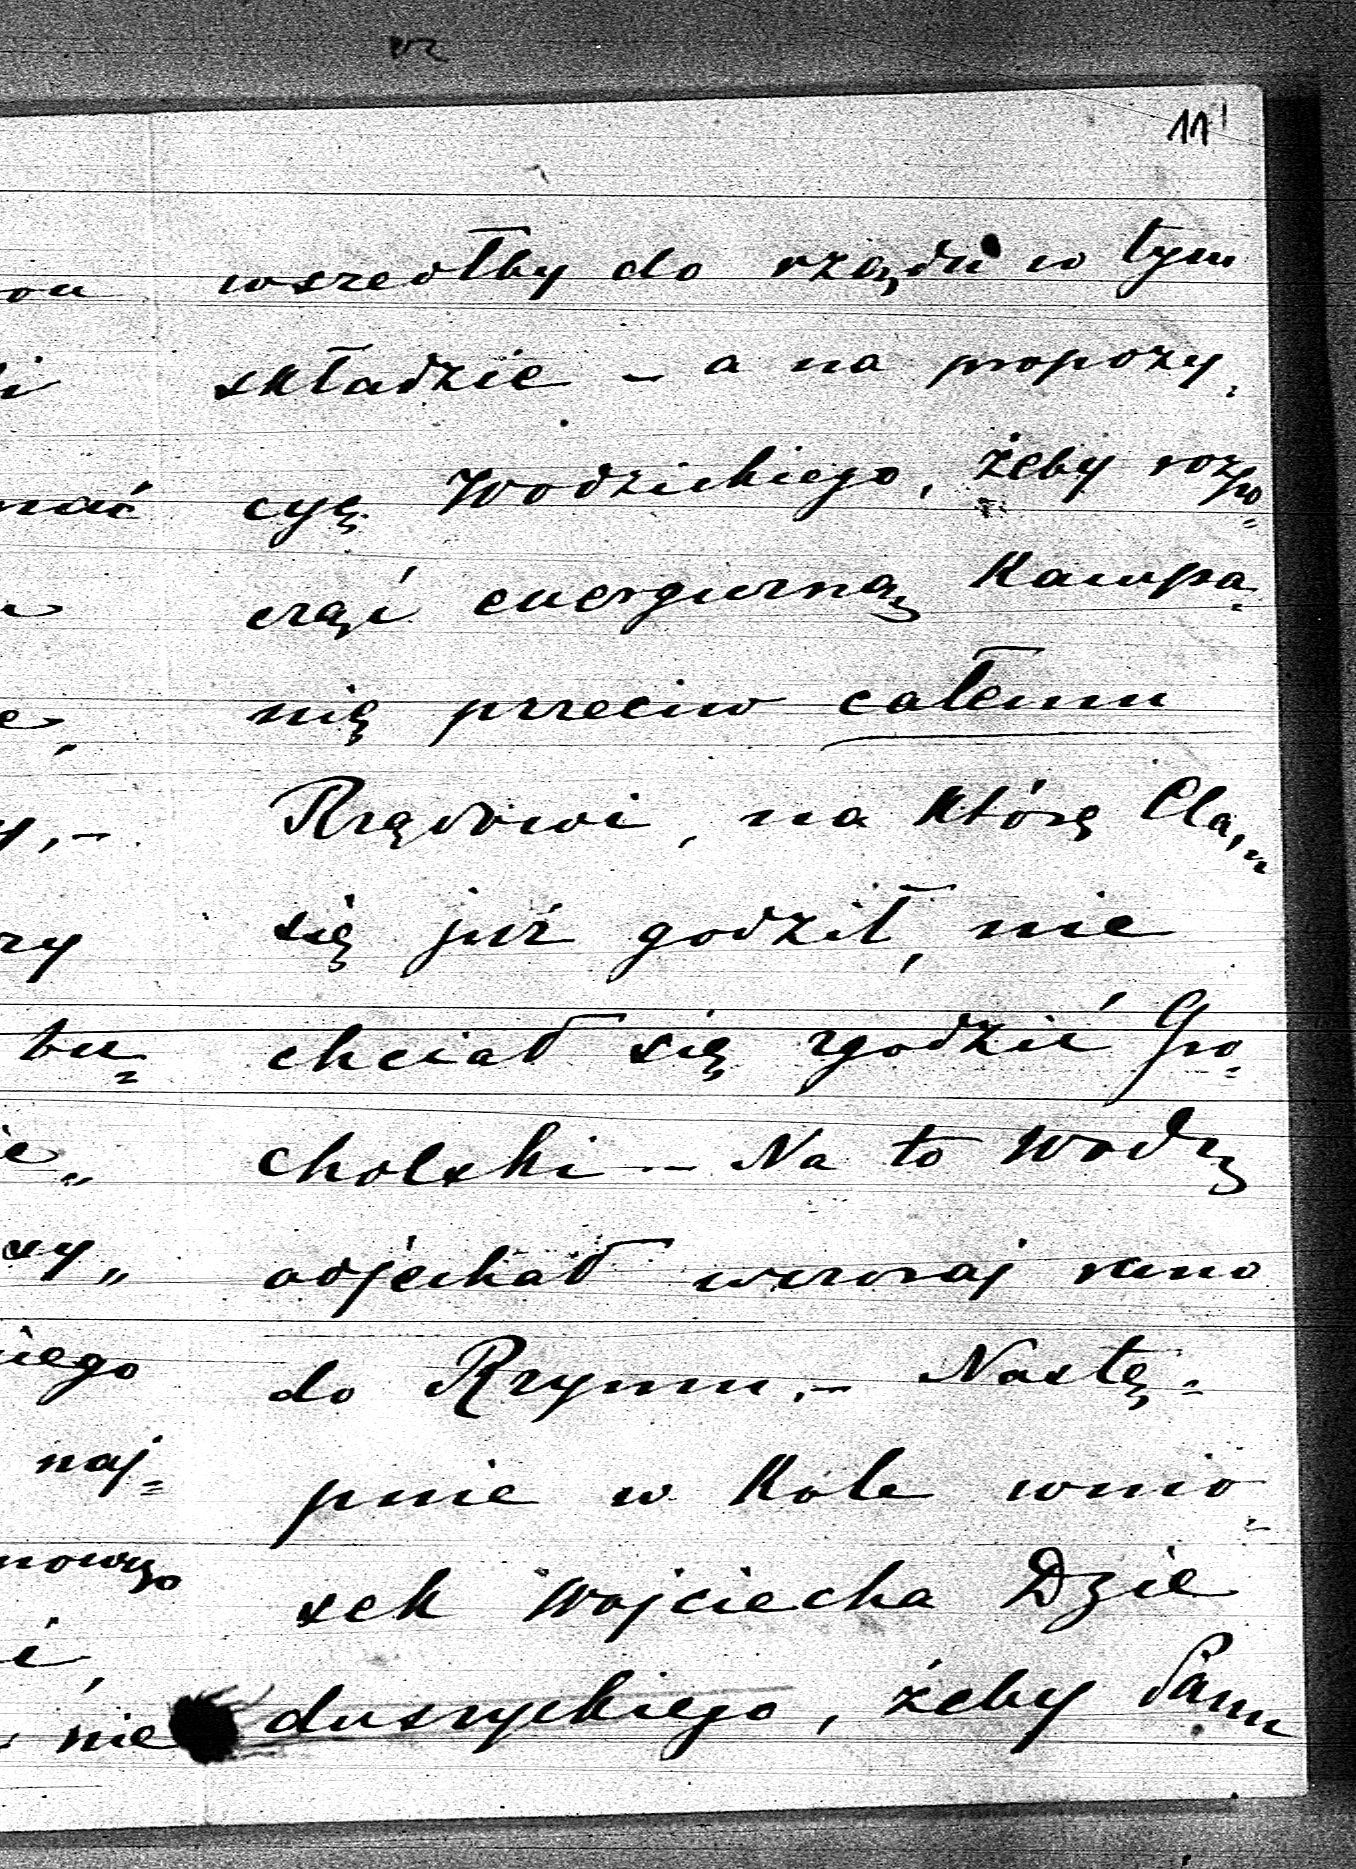 11
wszedłby do rządu w tym
składzie – a na propozy„
cyę Wodzickiego, żeby rozpo„
cząć energiczną kampa„
nię przeciw całemu
Rządowi, na którę Cla„
się już godził, nie
chciał się zgodzić Gro„
cholski – Na to Wodz
odjechał wczoraj rano
do Rzymu. – Nastę„
pnie w Kole wnio„
sek Wojciecha Dzie
duszyckiego, żeby Panu
mać
ry
bu„
ie„
szy„
kiego
naj„
nowego
nie